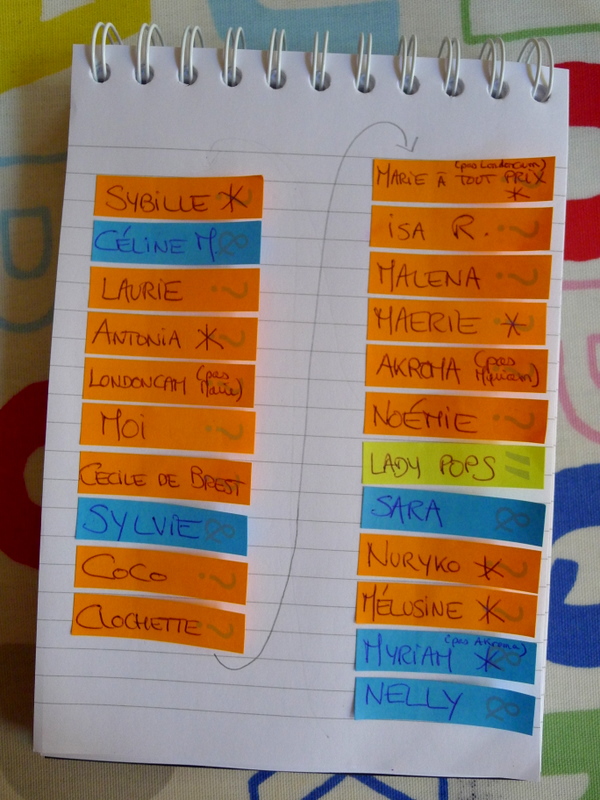 SYBILLE *
CÉLINE M.
LAURIE
ANTONIA *
LONDONCAM (pas Marie)
MOI
CECILE DE BREST
SYLVIE
COCO
CLOCHETTE
(pas Londoncam)
MARIE À TOUT PRIX *
ISA R.
MALENA
MAERIE *
AKROMA (pas Myriam)
NOÉMIE
LADY POPS
SARA
NURYKO *
MÉLUSINE *
(pas Akroma)
MYRIAM *
NELLY